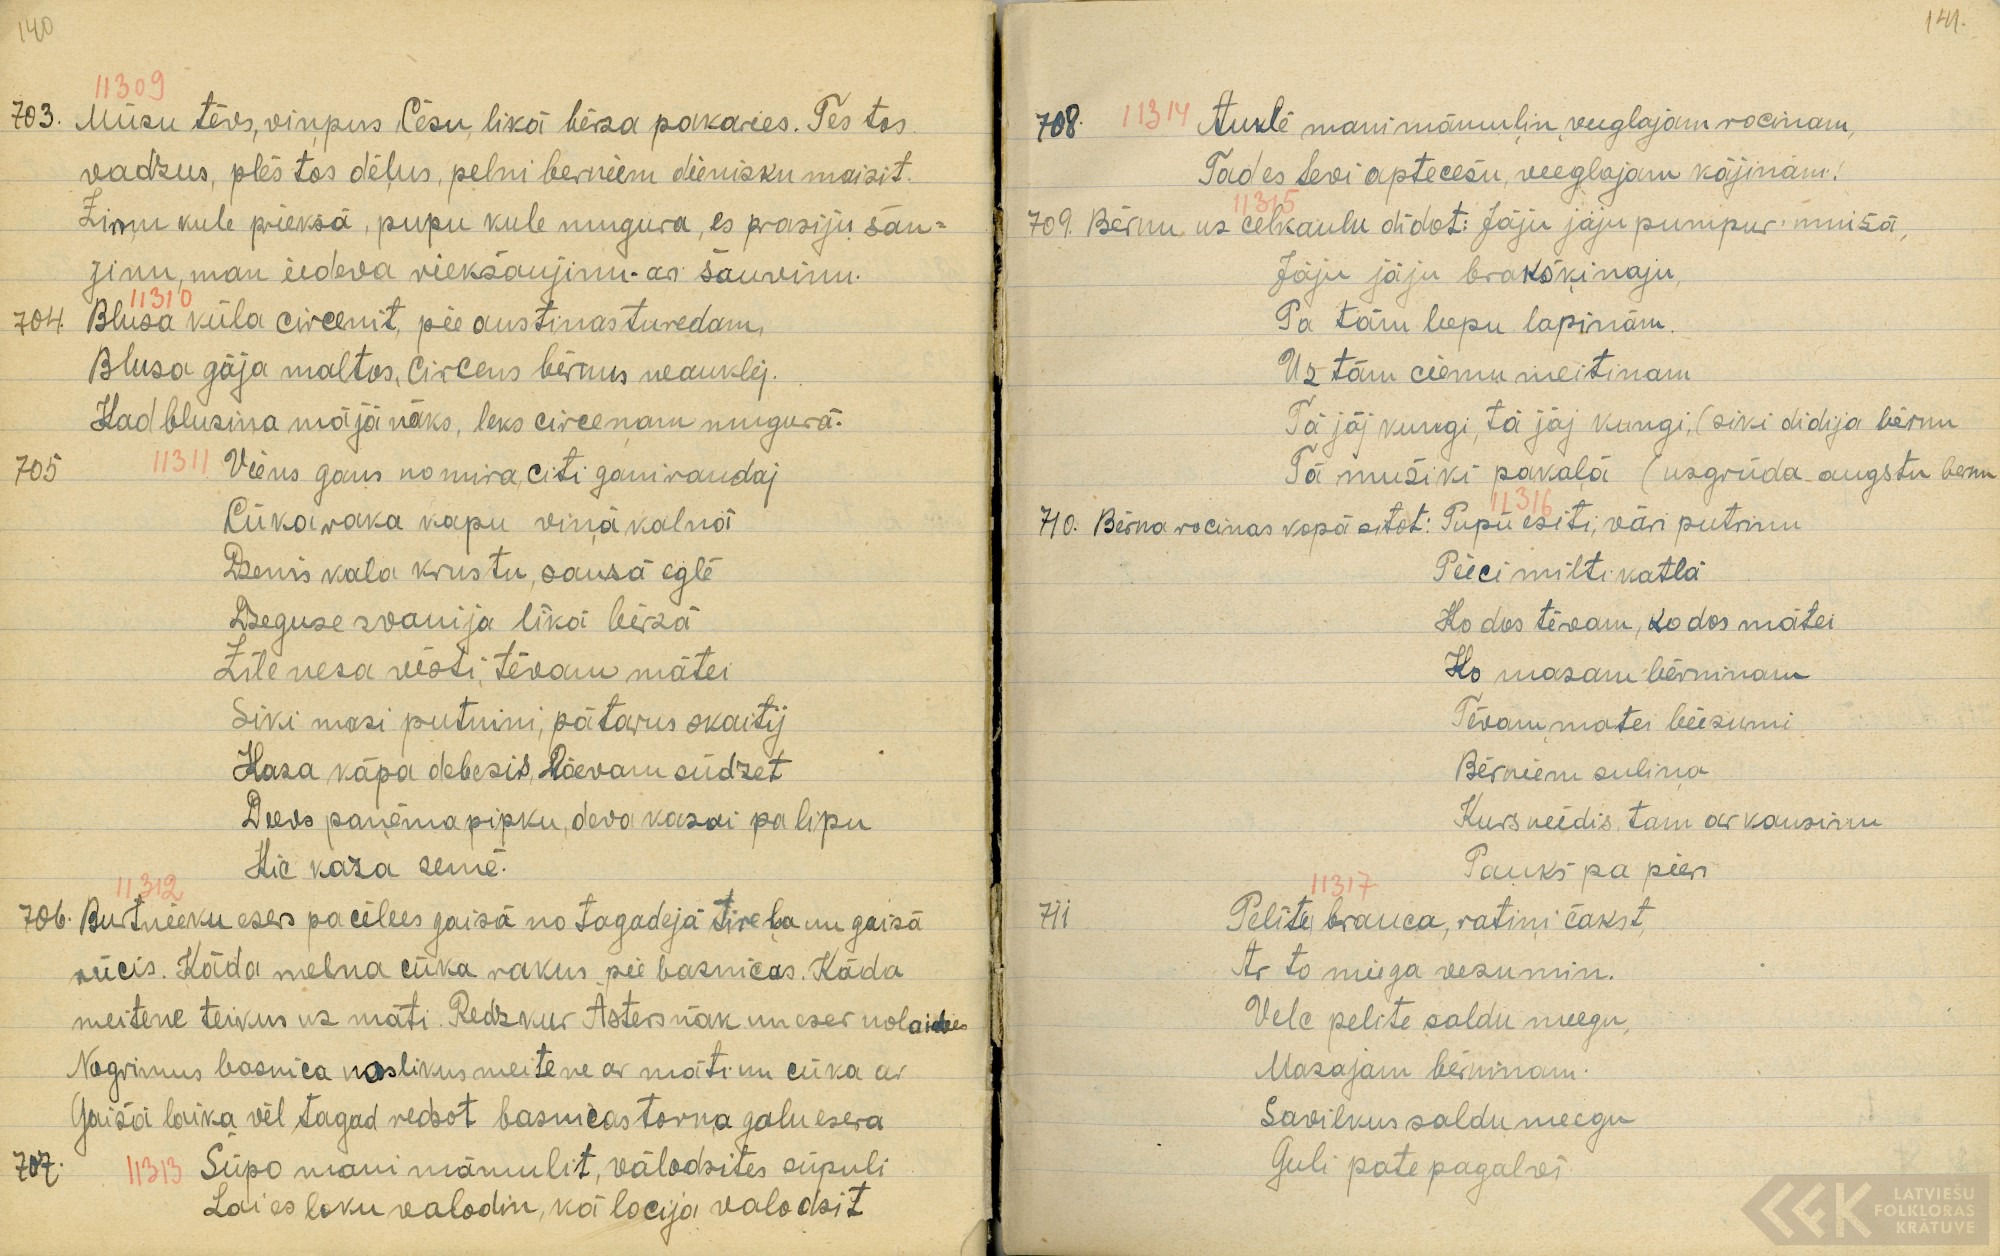 140
11309
703. Mūsu tēvs, viņpus Cēsu, līkā bērza pakaries. Tēs tos
vadžus, plēs tos dēļus, pelni berniem dienisku maizit.
Zirņu kule priekšā, pupu kule mugura, es prasiju šau=
jinu, man iedeva riekšaujinu ar šauvinu.
11310
704. Blusa kūla circenit, pie austinas turedam,
Blusa gāja maltos, Circens bērnus neauklēj.
Kad blusina mājā nāks, leks circeņam mugurā.
705 11311 Viens gans nomira, citi gani raudaj
Cūka raka kapu viņā kalnā
Dzenis kala krustu, sausā eglē
Dzeguse zvanija līkā bērzā
Zīle nesa vēsti, tēvam mātei
Siki masi putnini, pātarus skaitij
Kaza kāpa debesis, Dievam sūdzet
Dievs paņēma pipku, deva kazai pa lipu
Kic kaza semē.
11312
706. Burtnieku esers pacēlees gaisā no tagadejā tireļa un gaisā
rūcis. Kāda melna cūka rakus pie basnicas. Kāda
meitene teikus uz māti. Redz kur Āsters nāk un eser nolaidies
Nogrimus basnica noslikus meitene ar māti un cūka ar
Gaišā laika vēl tagad redzot basnicas torņa galu esera
707. 11313 Šūpo mani māmulit, vālodzites šūpuli
Lai es loku valodiņ, kā locija valodzit
141.
708. 11314 Auklē mani māmuliņ, vieglajam rociņam,
Tad es tevi aptecešu, vieglajam kājinām!
11315
709. Bērnu uz celkaulu dīdot: Jāju jāju pumpur muižā,
Jāju jāju brakšķinaju,
Pa tām liepu lapinām.
Uz tām ciemu meitinam
Tā jāj kungi, tā jāj kungi, (siki didija bērnu
Tā mužiki pakaļā (uzgrūda augstu bernu
11316
710. Bērna rocinas kopā sitot: Pupū esiti, vāri putrinu
Pieci milti katlā
Ko dos tēvam, ko dos mātei
Ko mazam bērninam
Tēvam, matei biezumi
Bērniem suliņa
Kurs neēdis, tam ar kausinu
Pauks pa pieri
11317
711 Pelīte brauca, ratiņi čakst,
Ar to miega vezumin.
Velc pelite saldu meegu,
Masajam bērninam.
Savilkus saldu meegu
Guli pate pagalvī
LATVIEŠU
FOLKLORAS
KRĀTUVE